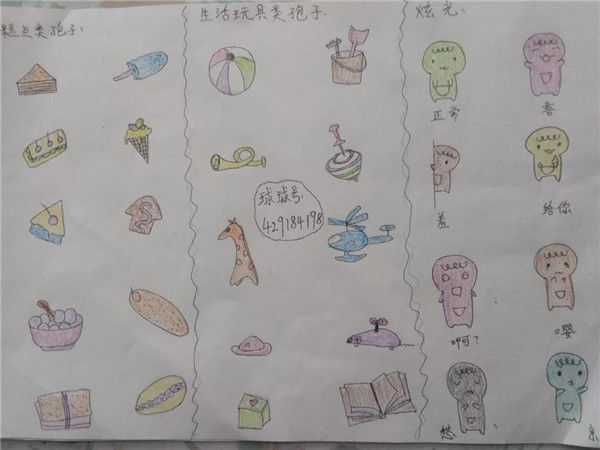 糕点类孢子:
生活玩具类孢子.
炫光:
正常
奢
羞
给你
球球号:
429184198
呵呵?
嘤
愁
亲